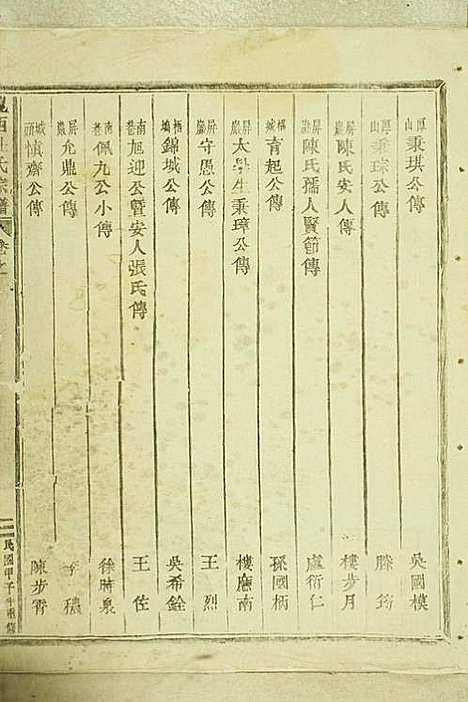 厚山 秉琪公傳 吳國模
厚山 秉琮公傳 滕筠
屏巖 陳氏安人傳 樓步月
屏巖 陳氏孺人賢節傳 盧衍仁
櫧城 育起公傳 孫國柄
屏巖 太學生秉璋公傳 樓應南
屏巖 守愚公傳 王烈
錦城公傳 吳希銓
南巷 旭迎公暨安人張氏傳 王佐
南巷 佩九公小傳 徐時泉
屏巖 允鼎公傳 李穠
城頭 慎齋公傳 陳步霄
西杜氏宗譜 卷之一
民國甲子年重修